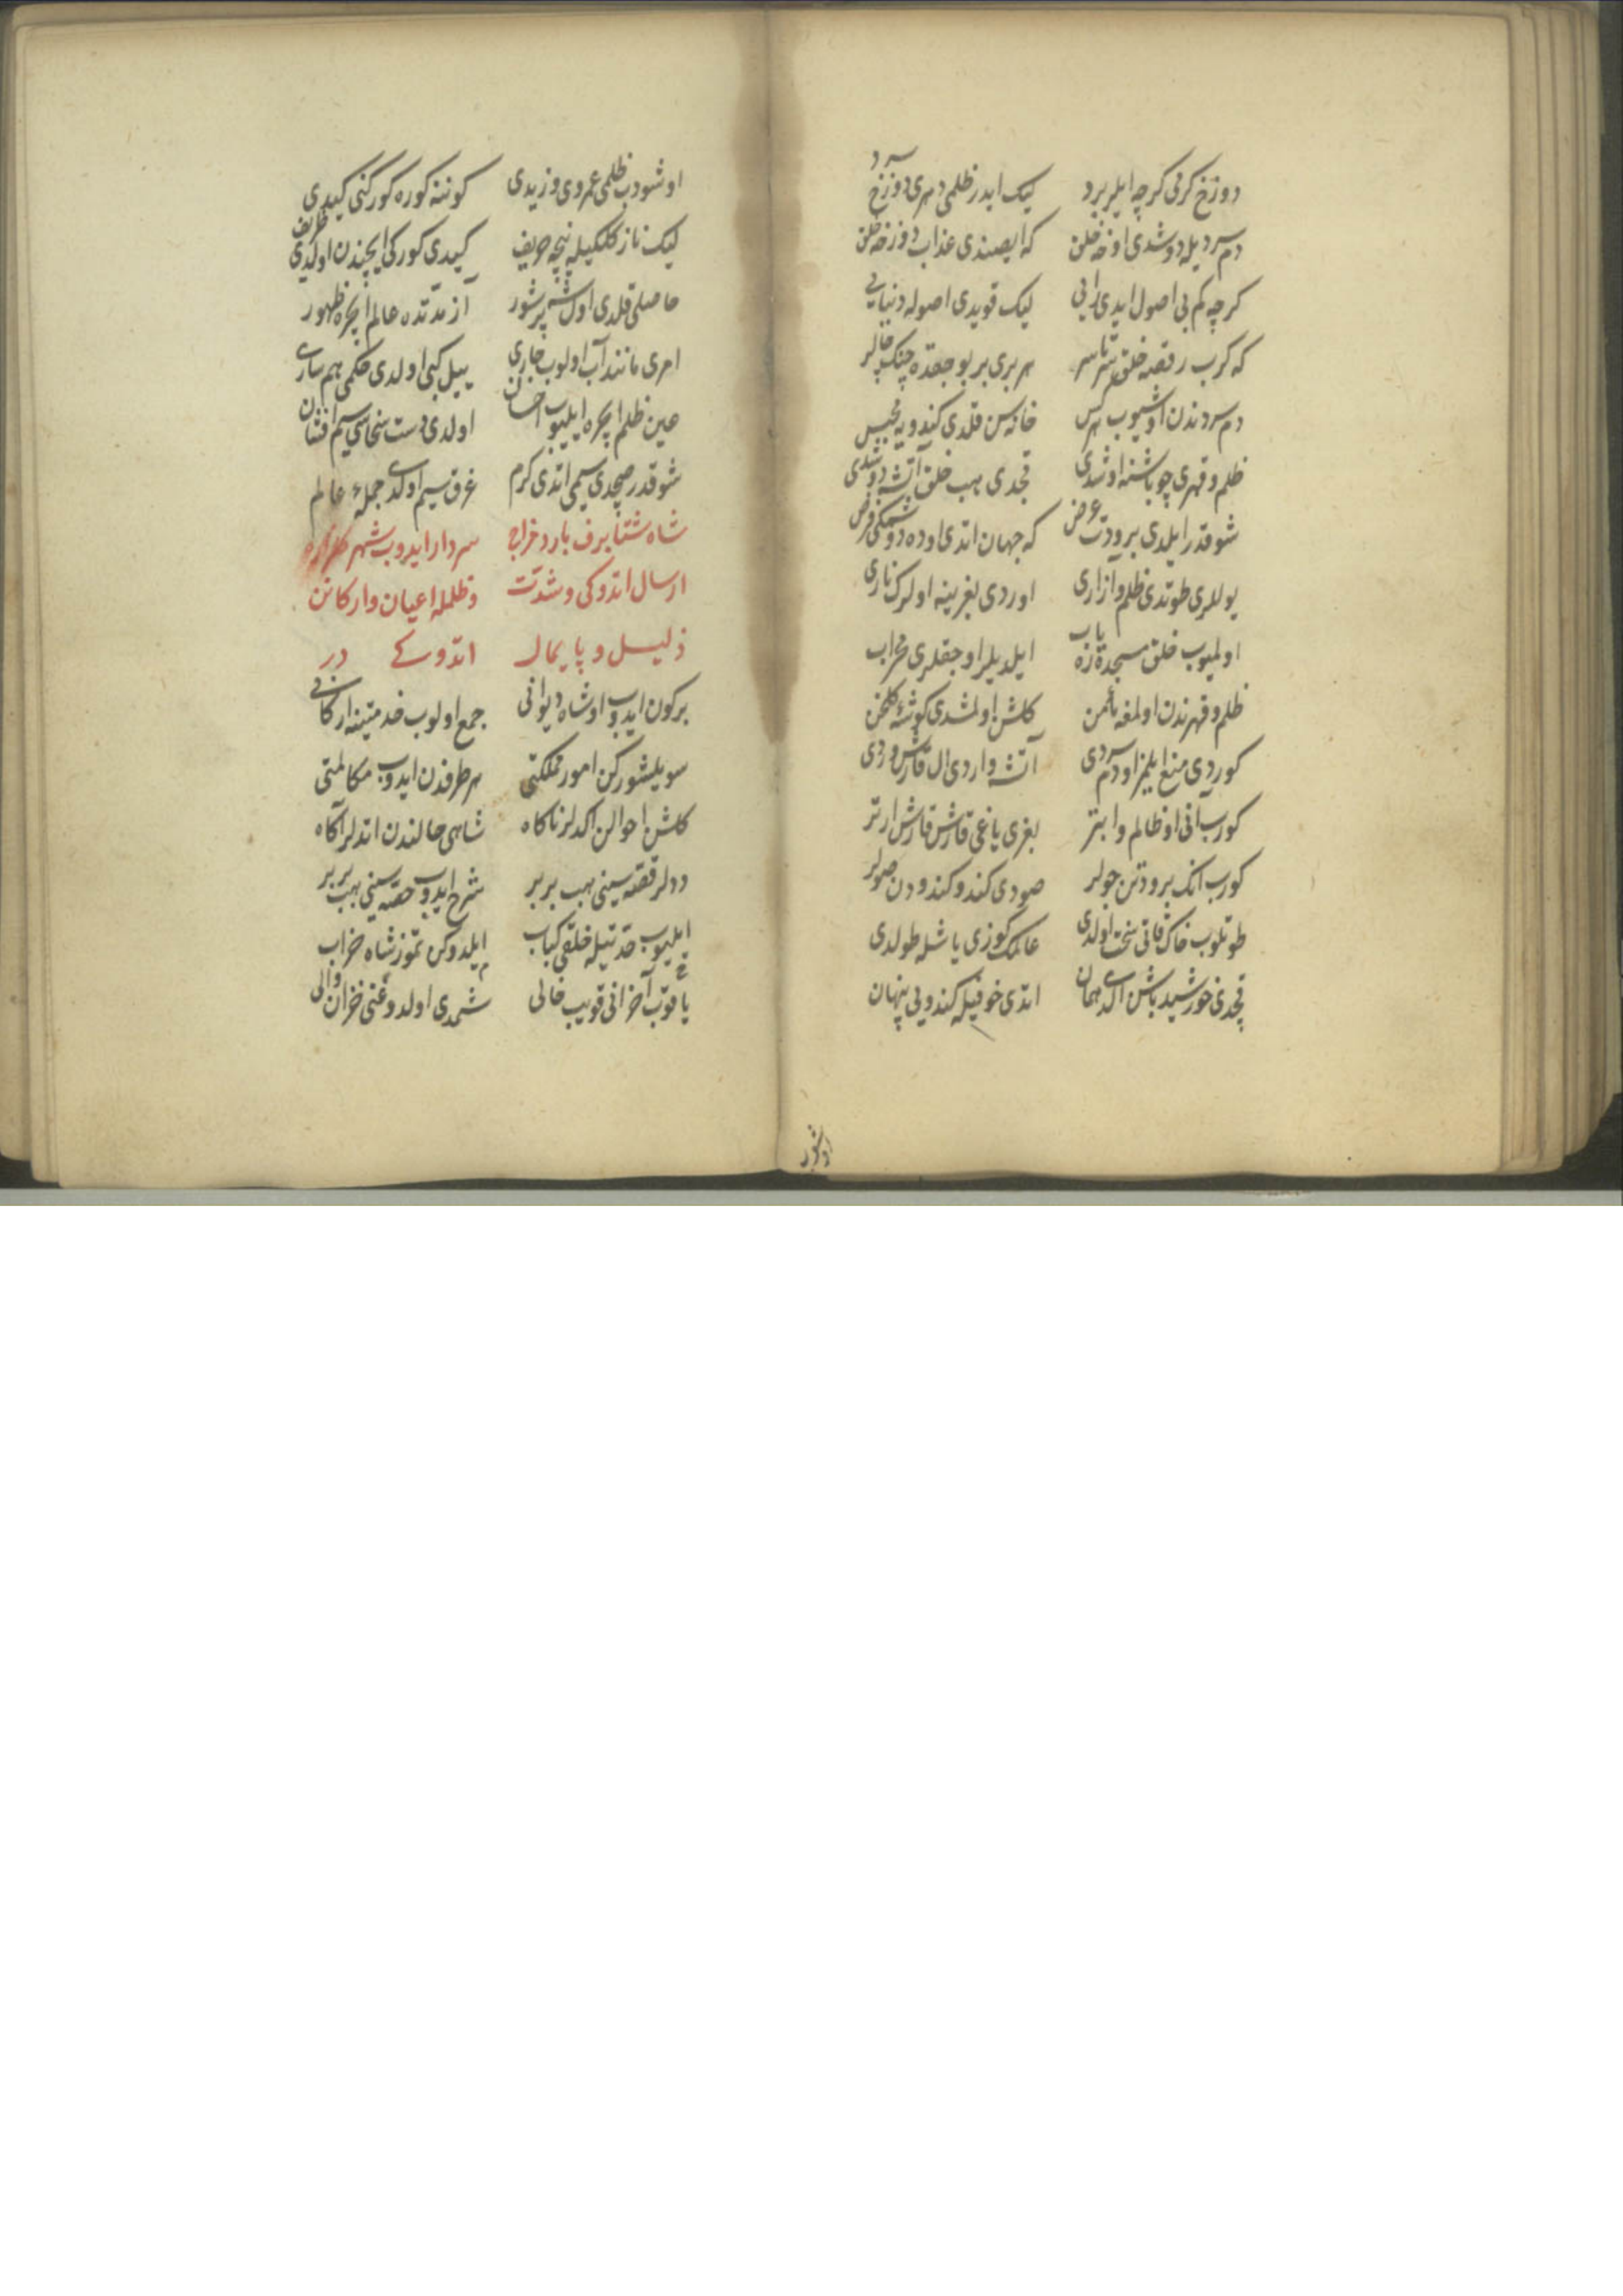 دوزخ كرمی كرچه ایلر برد لیك ایدر ظلمی دهری دوزخ سرد
دم سردیله دوشدی اوخه خلق كه ایصیندی عذاب دوزخه خلق
كرچه كم بی اصول ایدی رایی لیك قویدی اصوله دنیایی
كه كرب رقصه خلق سرتاسر هر بری بر بوجقده چنك چالر
دم سردندن اوشیوب هركس خانه سن قلدی كندویه محبس
ظلم و قهری چو باشنه اوشدی قچدی هب خلق آتشه دوشدی
شو قدر ایلدی برودت عرض كه جهان اتدی اوده دوشمكی فرض
یوللری طوتدی ظلم و آزاری اوردی بغرینه اولرك ناری
اولمیوب خلق مسجده تازه یاب ایلدیلر اوجقلری محراب
ظلم و قهرندن اولمغه مأمن كلشن اولمشدی كوشهٔ كلخن
كوردی منع ایلمز اودم سردی آتشه واردی ال قارش وردی
كورب آنی او ظالم و ابتر بغری یاغی قارش قارش ارتر
كورب انك برودتن جولر صودی كندو كندودن صولر
طوتلوب خاك قاتی سخت اولدی عالمك كوزی یاشله طولدی
قچدی خورشید باشن الدی همان اتدی خوفیله كندویی پنهان
اوشودب ظلمی عمروی و زیدی كوننه كوره كوركنی كیدی
لیك نازكلكیله نیچه حریف كیدی كوركی ایچندن اولدی ظریف
حاصلی قلدی اول شه پر شور از مدتده عالم ایچره ظهور
امری مانند آب اولوب جاری ییل كبی اولدی حكمی هم ساری
عین ظلم ایچره ایلیوب احسان اولدی دست سخاسی سیم افشان
شو قدر صچدی سیمی اتدی كرم غرق سیم اولدی جملهٔ عالم
شاه شتا برف بارد خراج سردار ایدوب شهر كلزاره
ارسال اتدوكی و شدت و ظلمله اعیان و اركانن
ذلیل و پایمال اتدوكی در
بركون ایدوب او شاه دیوانی جمع اولوب خدمتینه اركانی
سویلشوركن امور مملكتی هر طرفدن ایدوب مكالمتی
كلشن احوالن اكدلر ناكاه شاهی حالندن اتدلر آكاه
ددلر قصه سینی هب بربر شرح ایدوب حصه سینی هب بربر
ایلیوب حدتیله خلقی كباب ایلدوكن تموز شاه خراب
یاقوب آخر انی قویب خالی شمدی اولدوغنی خزان والی
اوشودب